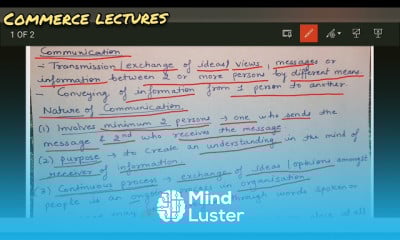 COMMERCE LECTURES
1 OF 2
Communication
- Transmission/exchange of ideas/views, messages or
information between 2 or more persons by different means.
- Conveying of information from 1 person to another
Nature of Communication
(1) Involves minimum 2 persons → one who sends the
message & 2nd who receives the message
(2) purpose → to create an understanding in the mind of
receiver of information.
(3) Continuous process → exchange of ideas/opinions amongst
people is an ongoing process in organisation.
through words spoken or
may
place at all
Mind
Luster